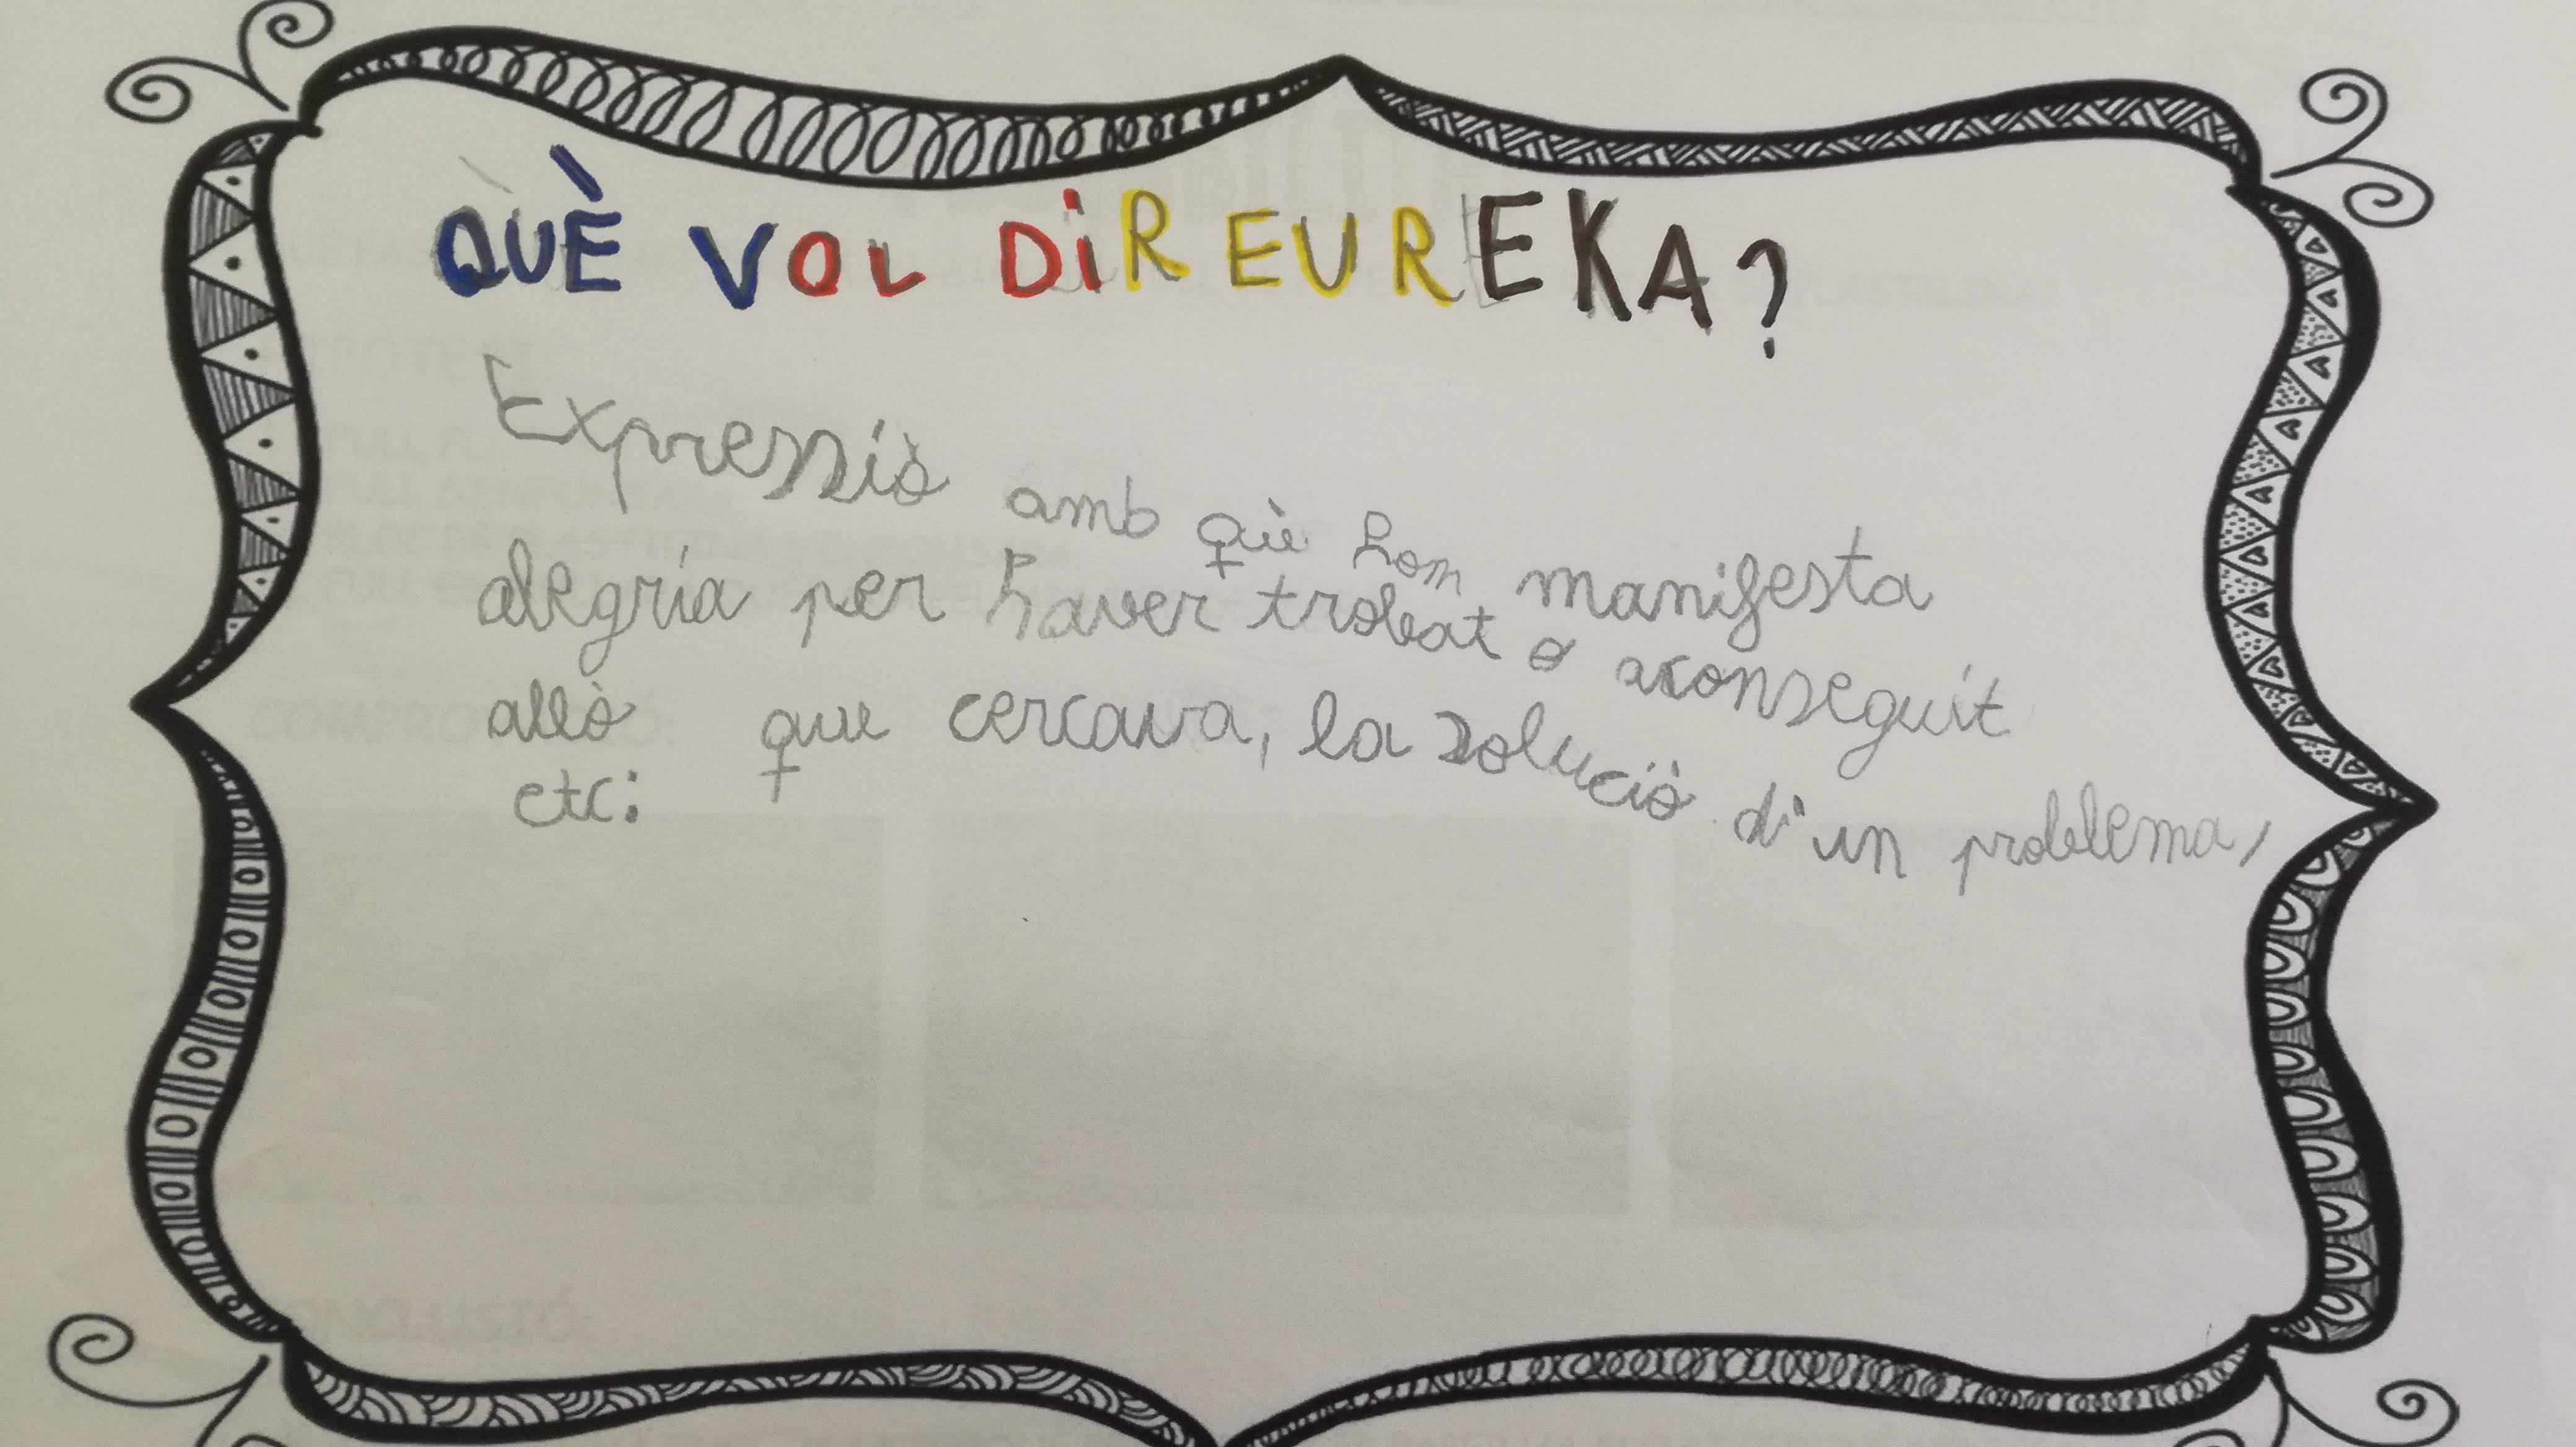 QUÈ VOL DiR EUREKA?
Expressiò amb què hom manifesta
alegría per haver trobat o aconseguit
allò que cercava, la soluciò d'un problema,
etc: